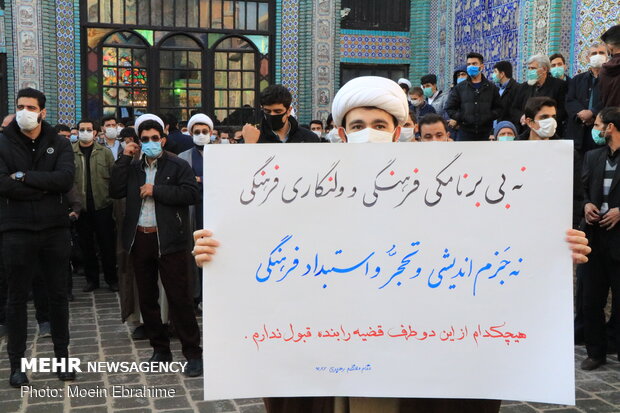 نه بی برنامگی فرهنگی و ولنگاری فرهنگی
نه جَزم اندیشی و تحجُّر و استبداد فرهنگی
هیچکدام از این دو طرف قضیه را بنده قبول ندارم .
MEHR NEWSAGENCY
Photo: Moein Ebrahime